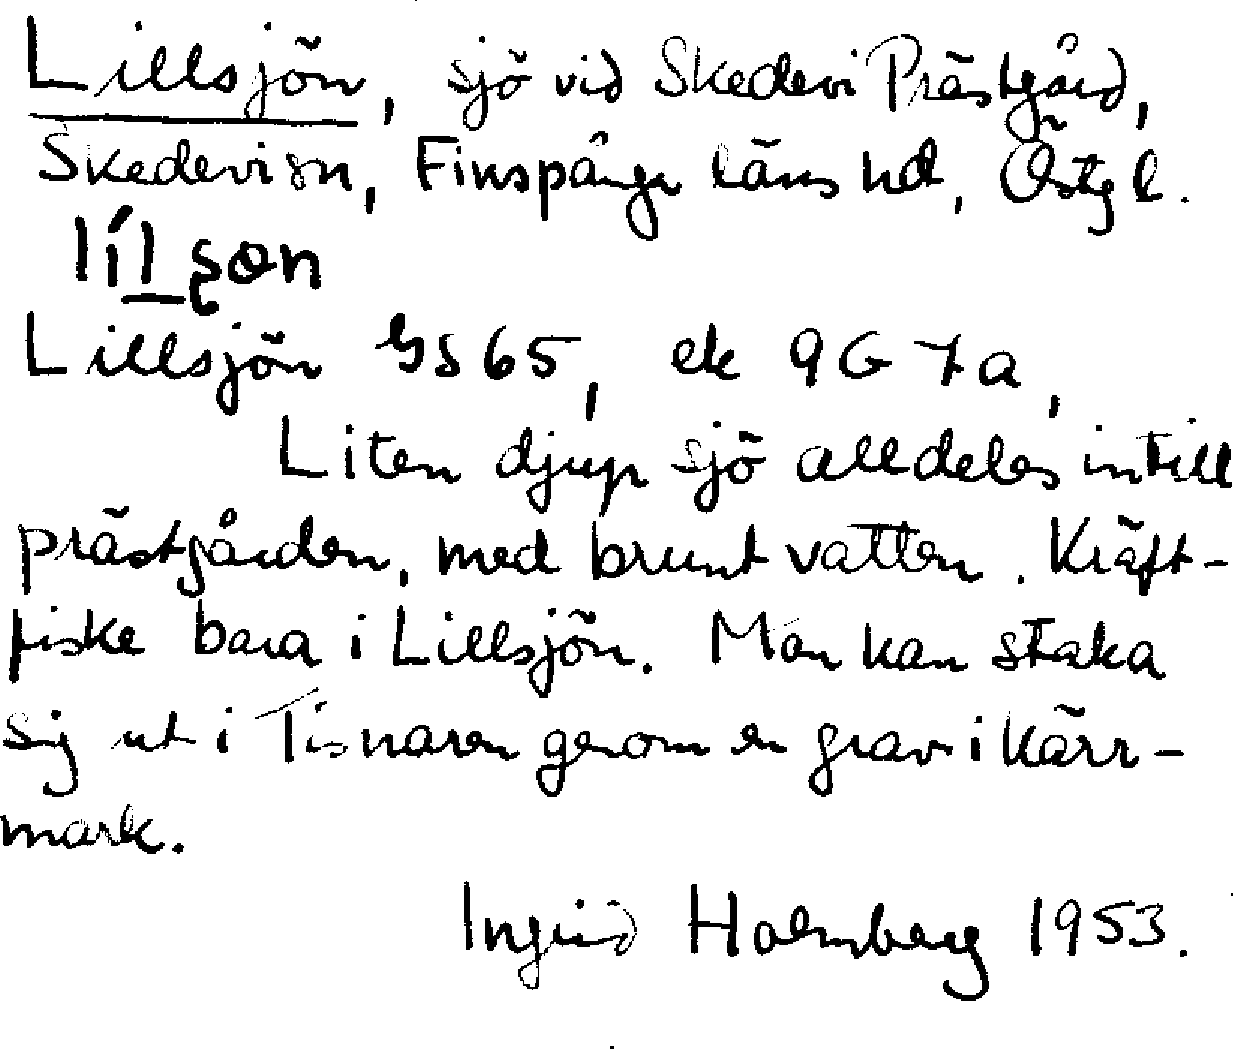 Lillsjön, sjö vid Skedevi Prästgård,
Skedevi sn, Finspånga läns hd, Östgl.
líl̲şøn
Lillsjön GS65, ek 9G7a,
Liten djup sjö alldeles intill
prästgården, med brunt vatten. Kräft-
fiske bara i Lillsjön. Man kan staka
sig ut i Tisnaren genom en grav i kärr-
mark.
Ingrid Holmberg 1953.